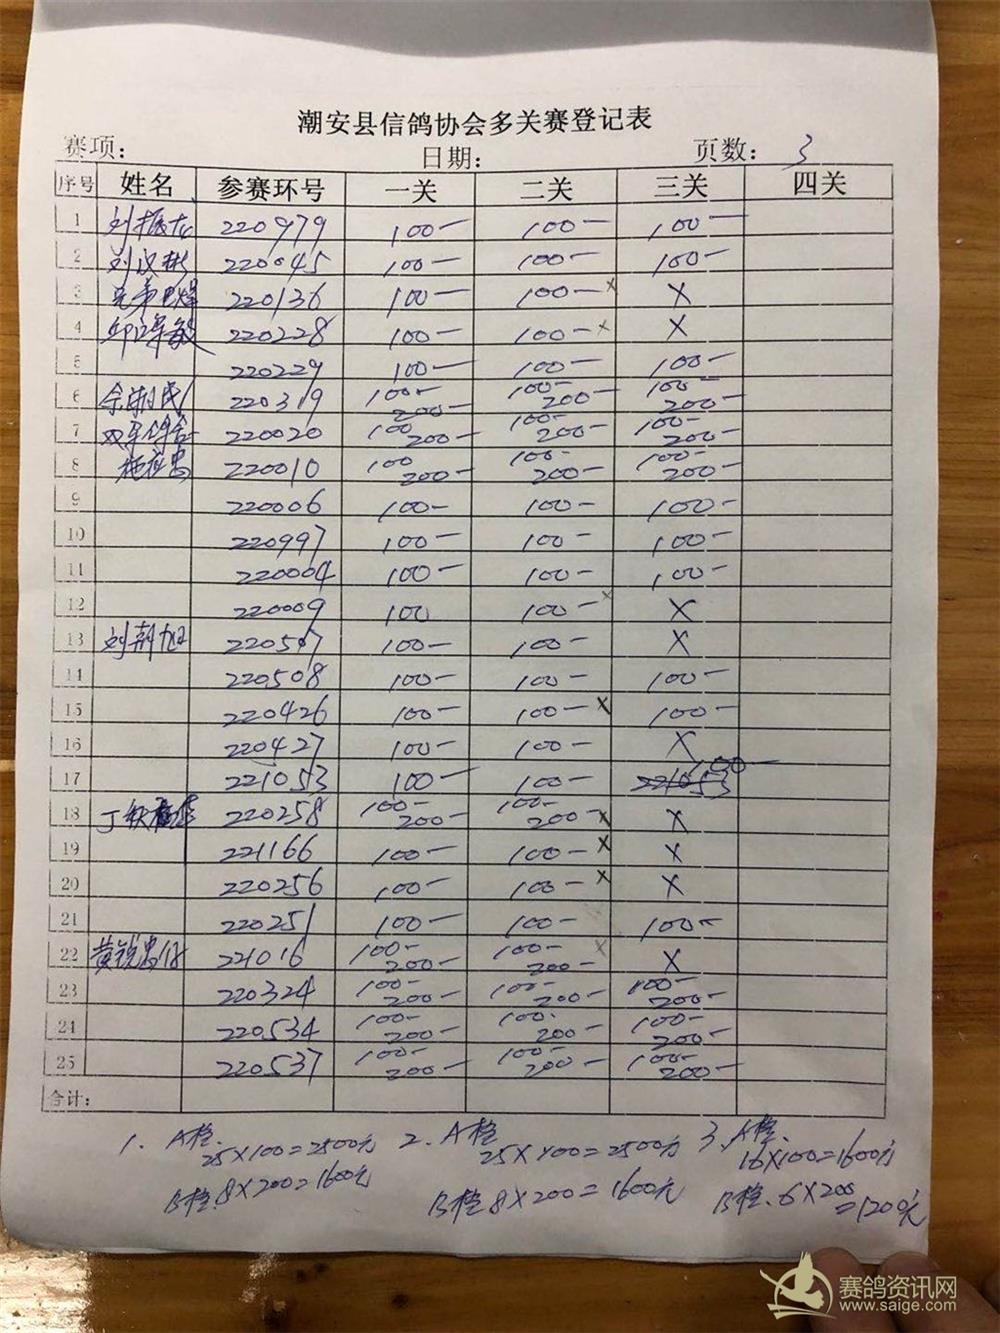 潮安县信鸽协会多关赛登记表
赛项: 日期: 页数: 3
序号 姓名 参赛环号 一关 二关 三关 四关
1 刘振 220979 100- 100- 100-
2 刘汉彬 220045 100- 100- 100-
3 兄弟 220136 100- 100- x X
4 220228 100- 100- x X
5 220229 100- 100- 100-
6 220319 100- 200- 100- 200- 100- 200-
7 220020 100 200- 100- 200- 100- 200-
8 220010 100 200- 100- 200- 100- 200-
9 220006 100- 100- 100-
10 220997 100- 100- 100-
11 220004 100- 100- 100-
12 220009 100 100- x X
13 刘 旭 220507 100- 100- X
14 220508 100- 100- 100-
15 220426 100- 100- x 100-
16 220427 100- 100- X
17 221053 100- 100- 221053 100-
18 丁 220258 100- 200- 100- 200- x X
19 221166 100- 100- x X
20 220256 100- 100- x X
21 220251 100- 100- 100-
22 黄锐忠 221016 100- 200- 100- 200- x X
23 220324 100- 200- 100- 200- 100- 200-
24 220534 100- 200- 100- 200- 100- 200-
25 220537 100- 200- 100- 200- 100- 200-
合计:
1. A档. 25X100=2500元 2. A档 25X100=2500元 3. A档. 16X100=1600元
B档. 8X200=1600元 B档 8X200=1600元 B档. 6X200=1200元
赛鸽资讯网
www.saige.com